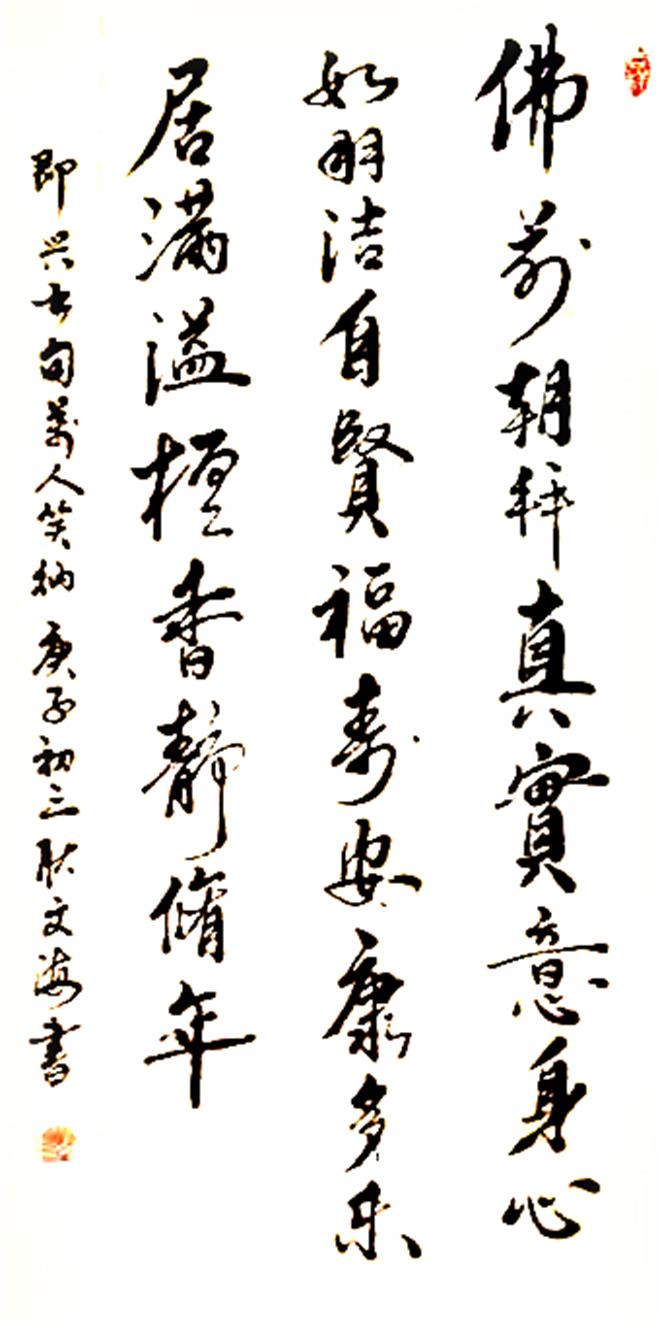 佛前朝拜真實意身心
如羽洁自賢福寿安康多乐
居满溢檀香靜脩年
即兴七句万人笑纳 庚子初三耿文海書